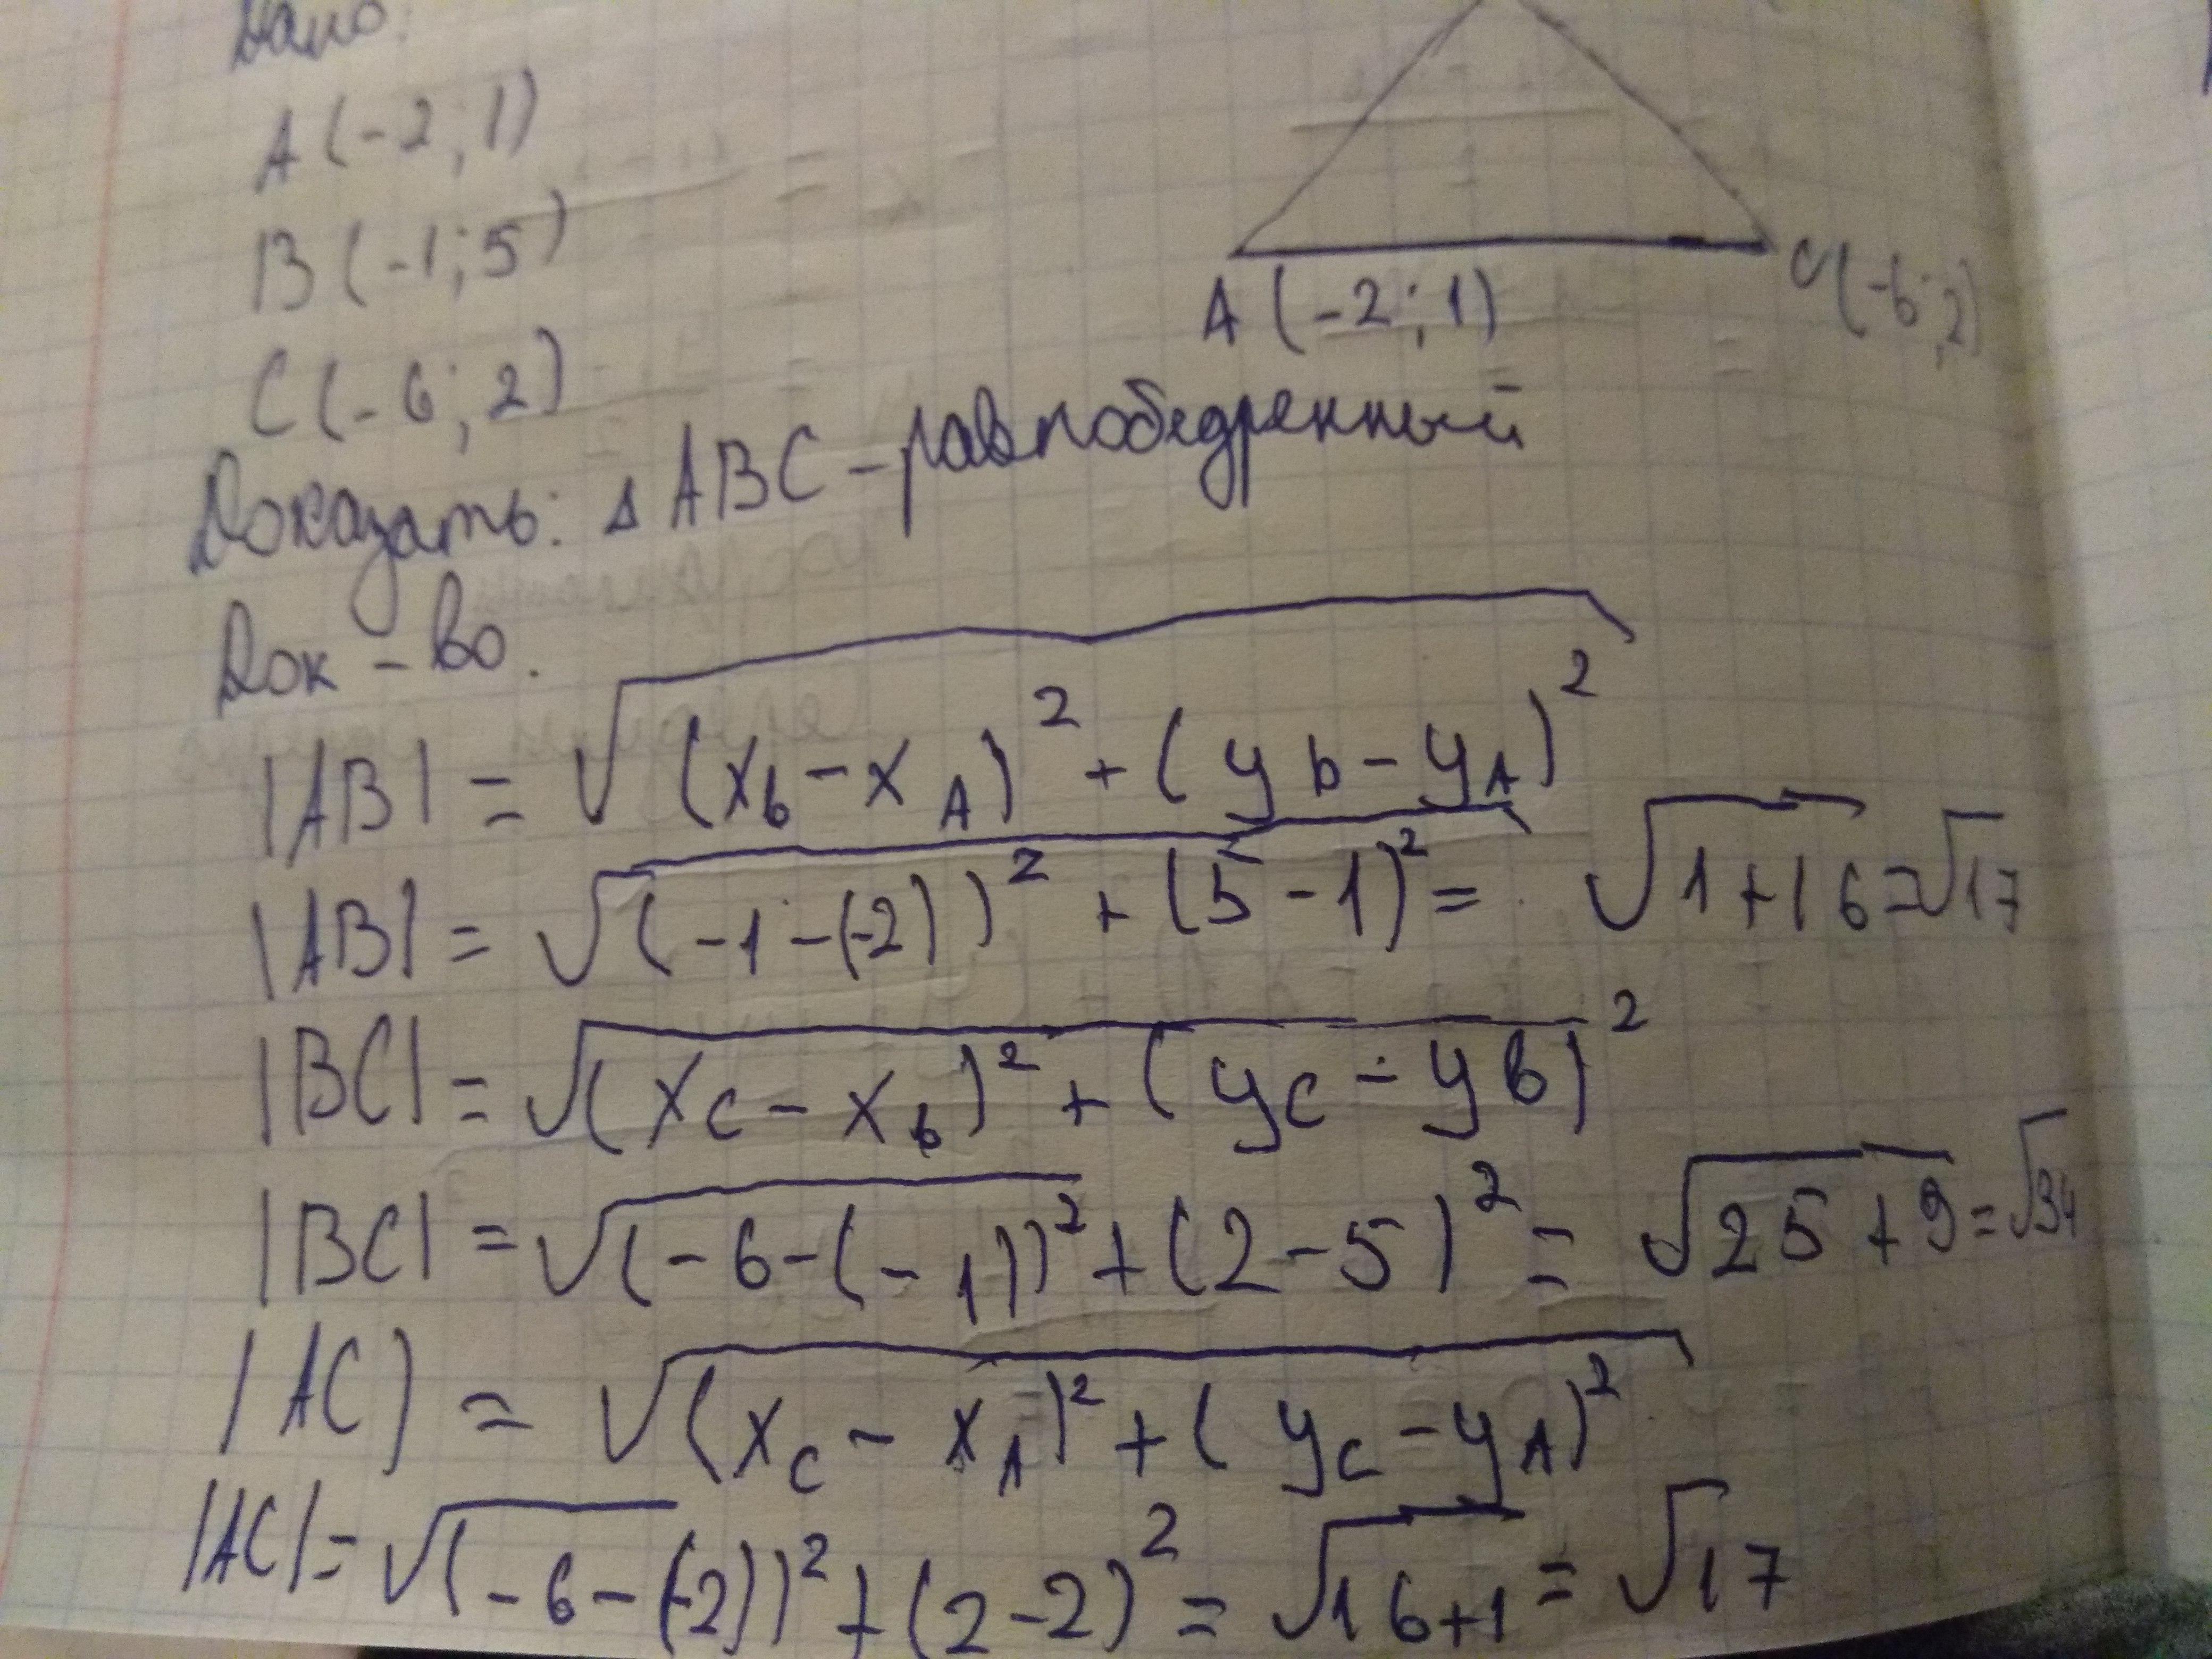 Дано:
A(-2;1)
B(-1;5)
C(-6;2)
A(-2;1)
C(-6;2)
Доказать: △ABC-равнобедренный
Док-во.
|AB| = √(xb-xA)²+(yb-yA)²
|AB| = √(-1-(-2))²+(5-1)² = √1+16=√17
|BC| = √(xc-xb)²+(yc-yb)²
|BC| = √(-6-(-1))²+(2-5)² = √25+9=√34
|AC| = √(xc-xA)²+(yc-yA)²
|AC|=√(-6-(-2))²+(2-2)² = √16+1 = √17